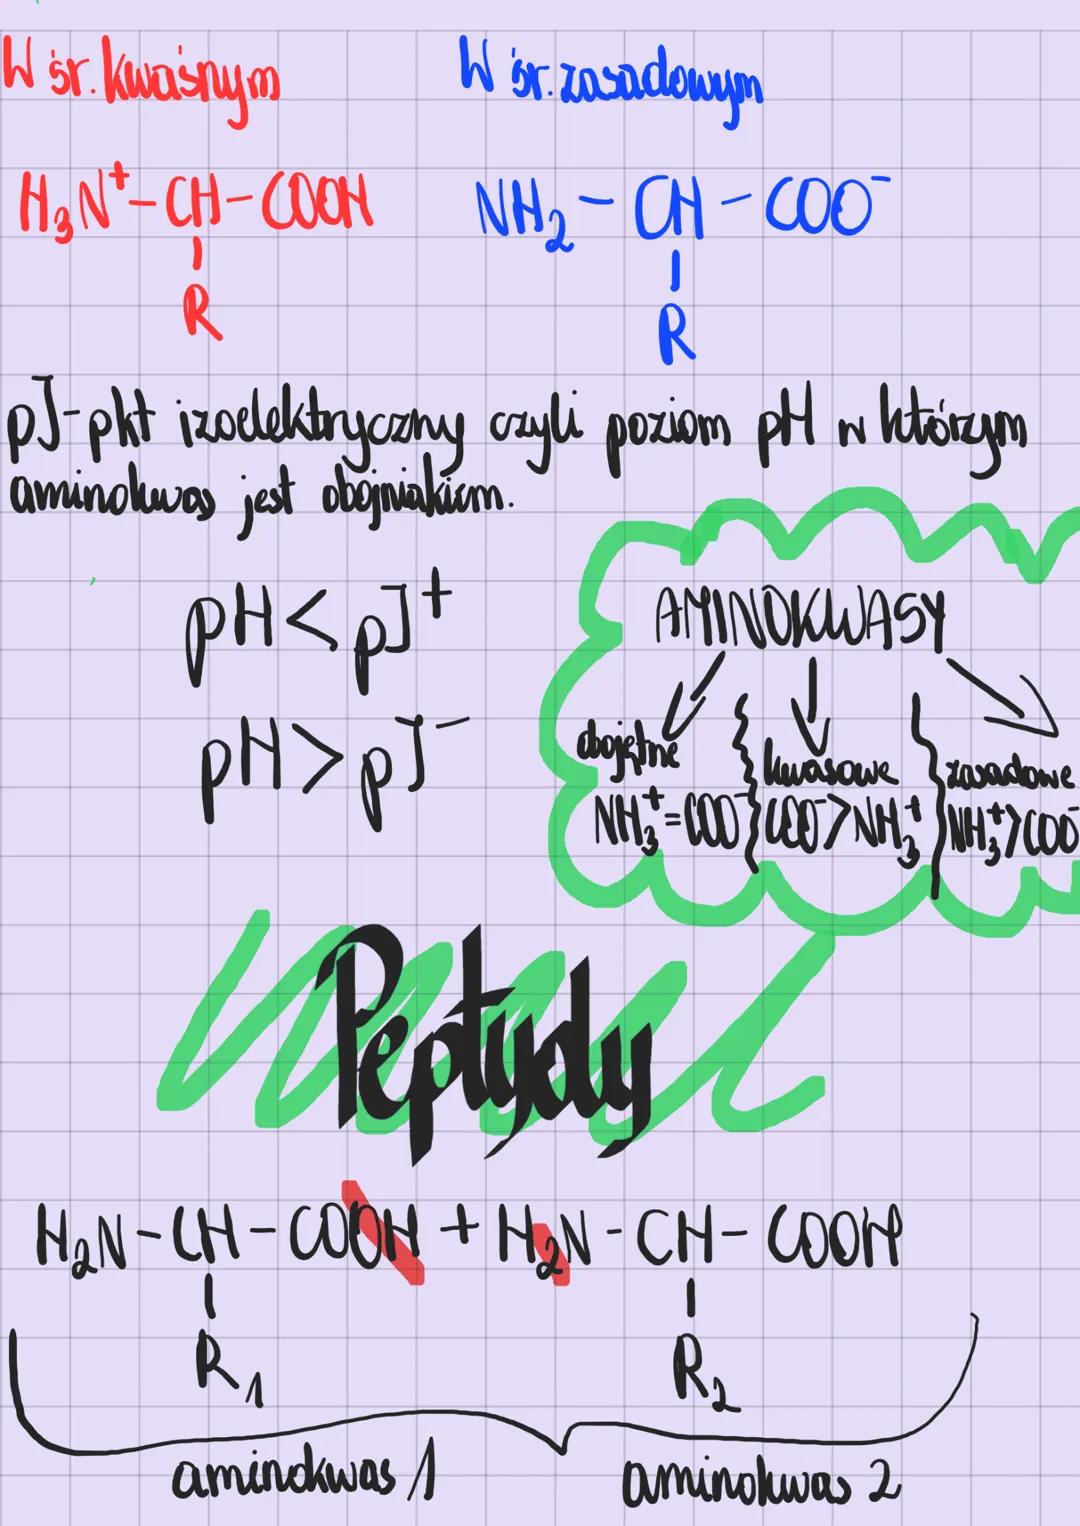 W śr. kwaśnym
W śr. zasadowym
H₃N⁺-CH-COOH
NH₂-CH-COO⁻
R
R
pJ-pkt izoelektryczny czyli poziom pH w którzym
aminokwas jest obojniakiem.
pH < pJ⁺
pH > pJ⁻
AMINOKWASY
obojętne
kwasowe
zasadowe
NH₃⁺=COO⁻
COO⁻>NH₃⁺
NH₃⁺>COO⁻
Peptydy
H₂N-CH-COOH + H₂N-CH-COOH
R₁
R₂
aminokwas 1
aminokwas 2